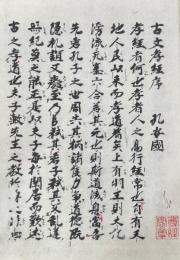 古文孝經序 孔安國
孝經者何也孝者人之高行經常也自有天
地人民以來而孝道著矣上有明王則大化
滂流充塞六合若其無也則斯道滅息當吾
先君孔子之世周失其柄諸侯力爭道德既
隱礼誼又廢至乃臣弑其君子弑其父亂逆
無紀莫之能正是以夫子每於閒居而歎述
古之孝道也夫子敷先王之教於魯之洙泗